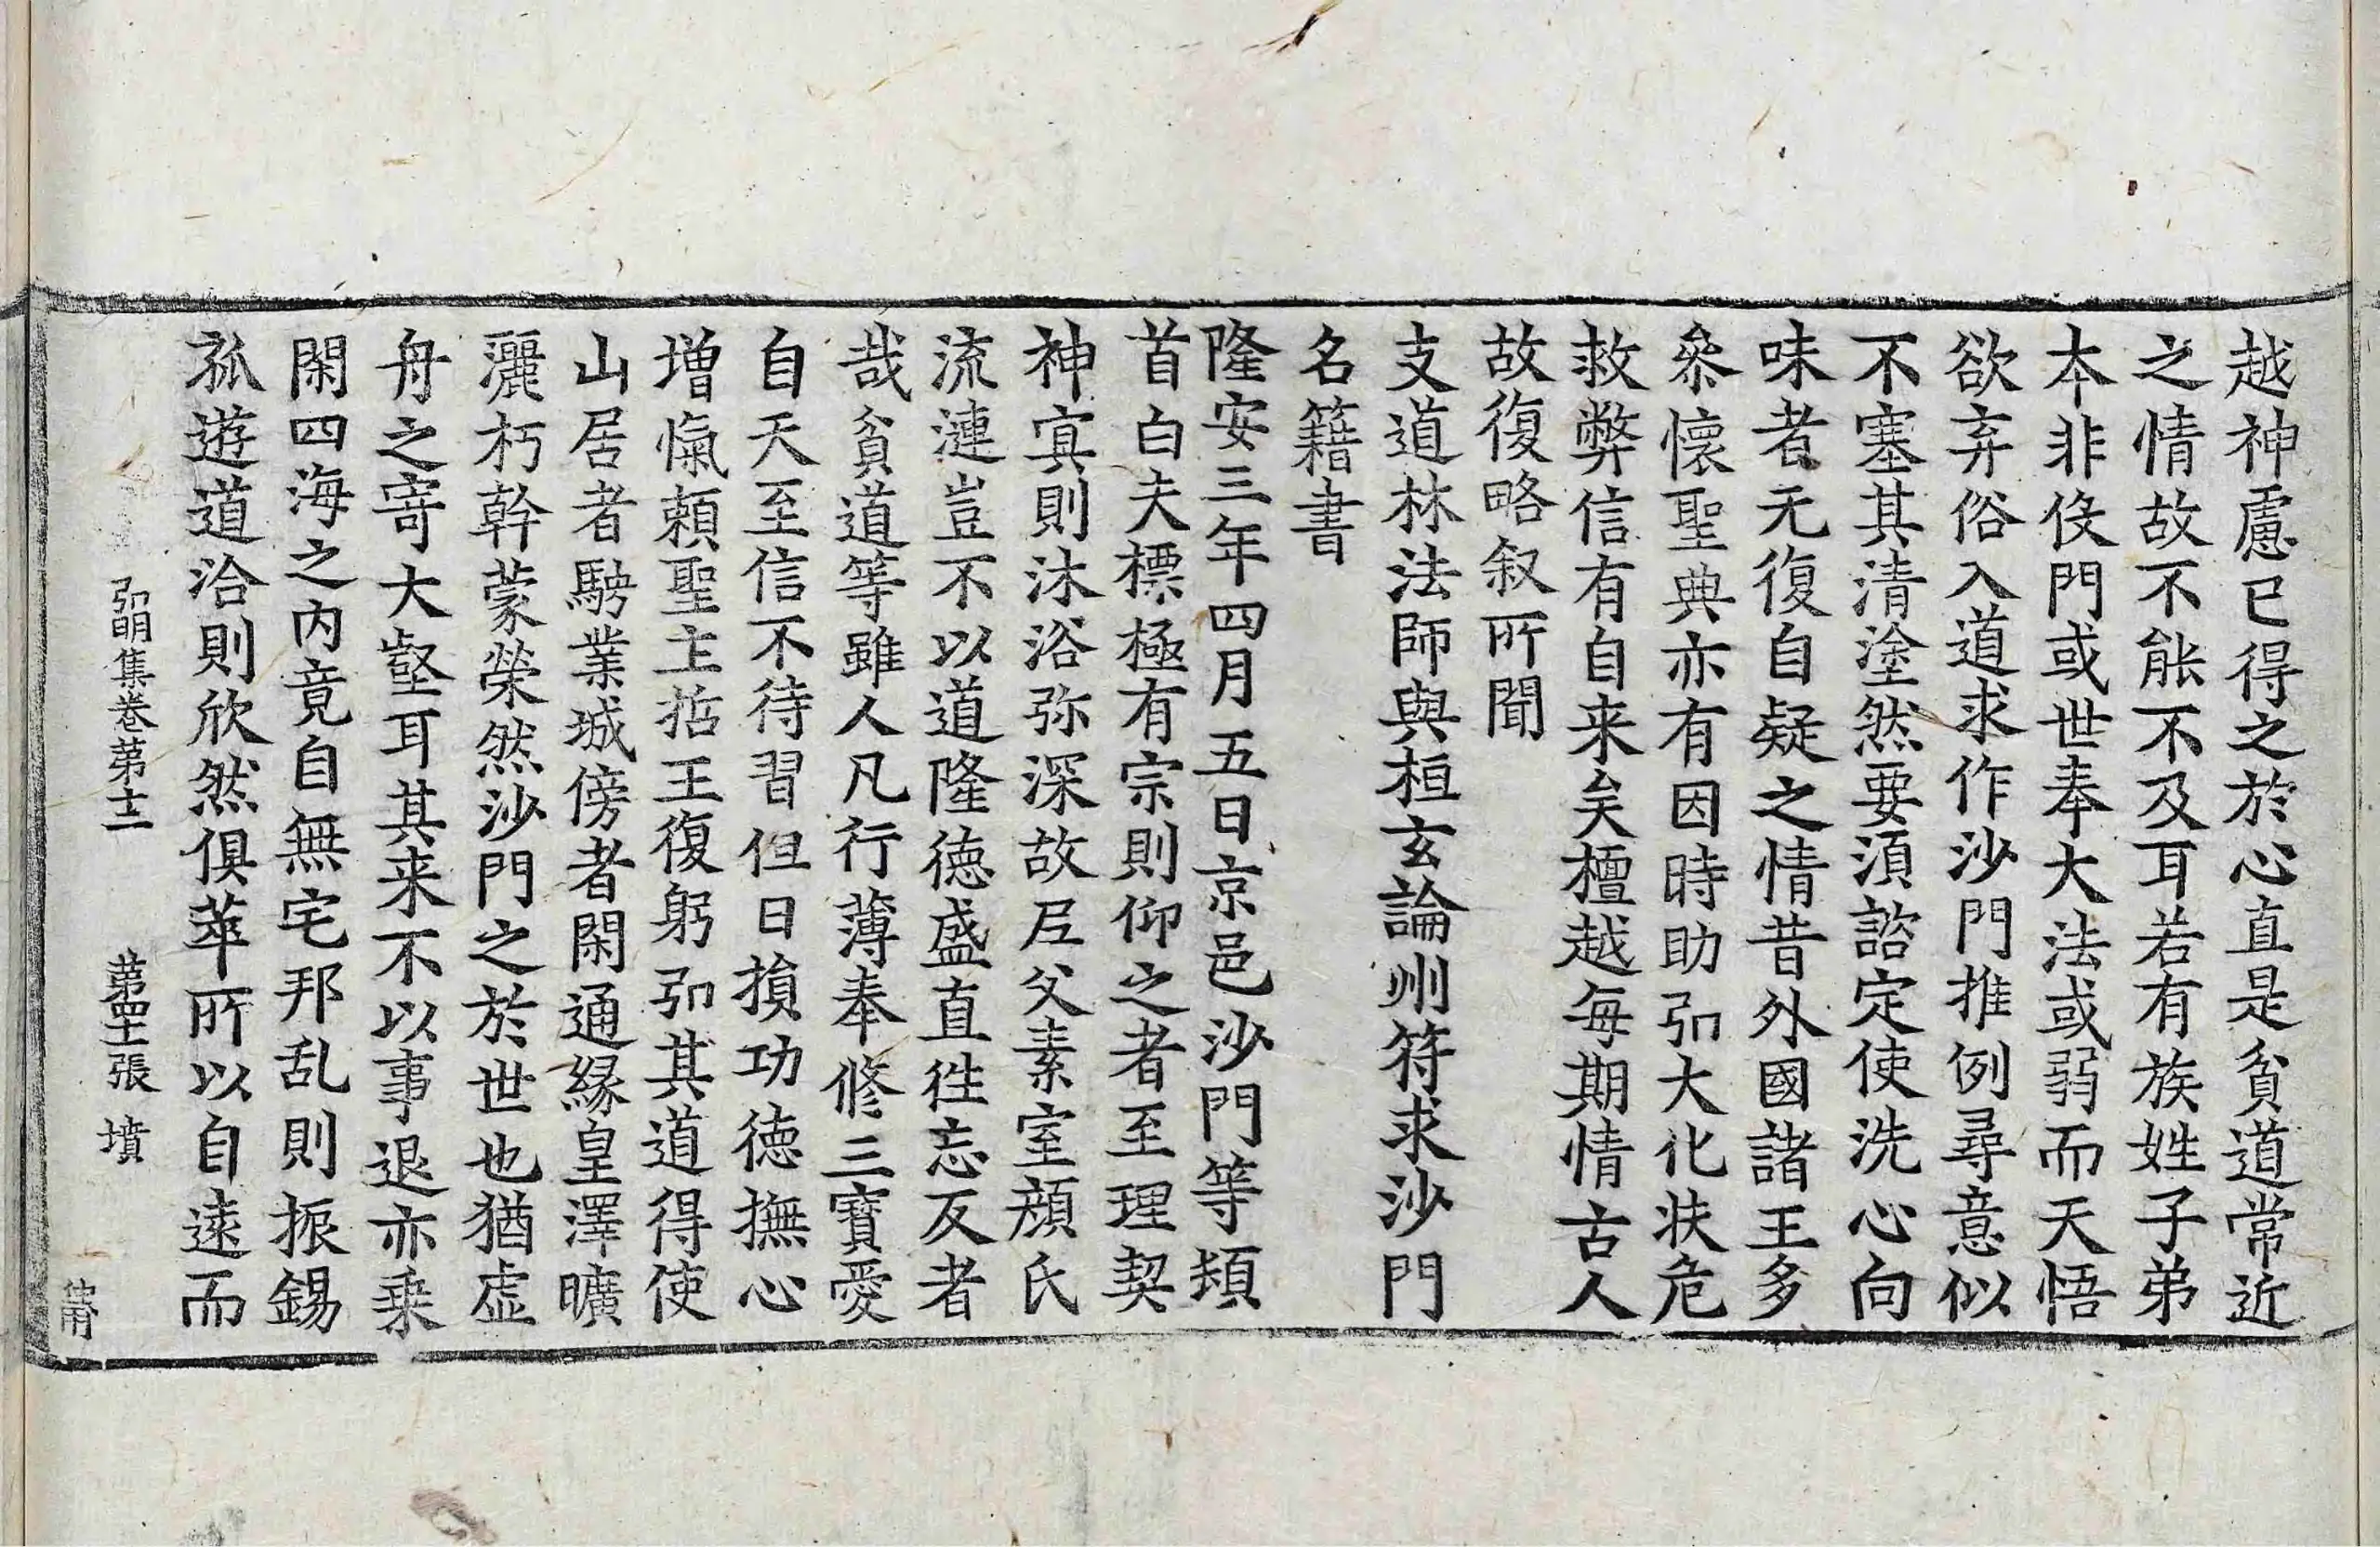 越神慮已得之於心直是貧道常近
之情故不能不及耳若有族姓子弟
本非役門或世奉大法或弱而天悟
欲弃俗入道求作沙門推例尋意似
不塞其清塗然要須諮定使洗心向
味者无復自疑之情昔外國諸王多
叅懷聖典亦有因時助弘大化扶危
救弊信有自来矣檀越每期情古人
故復略叙所聞
支道林法師與桓玄論州符求沙門
名籍書
隆安三年四月五日京邑沙門等頓
首白夫標極有宗則仰之者至理契
神寘則沐浴弥深故尼父素室顔氏
流漣豈不以道隆德盛直徃忘反者
哉貧道等雖人凡行薄奉修三寶愛
自天至信不待習但日損功徳撫心
增愾頼聖主括王復躬弘其道得使
山居者騁業城傍者閑通緣皇澤曠
灑朽幹蒙榮然沙門之於世也猶虚
舟之寄大壑耳其来不以事退亦乗
閑四海之内竟自無宅邦乱則振錫
孤遊道洽則欣然俱萃所以自遠而
弘明集卷第十二 第四十張 墳